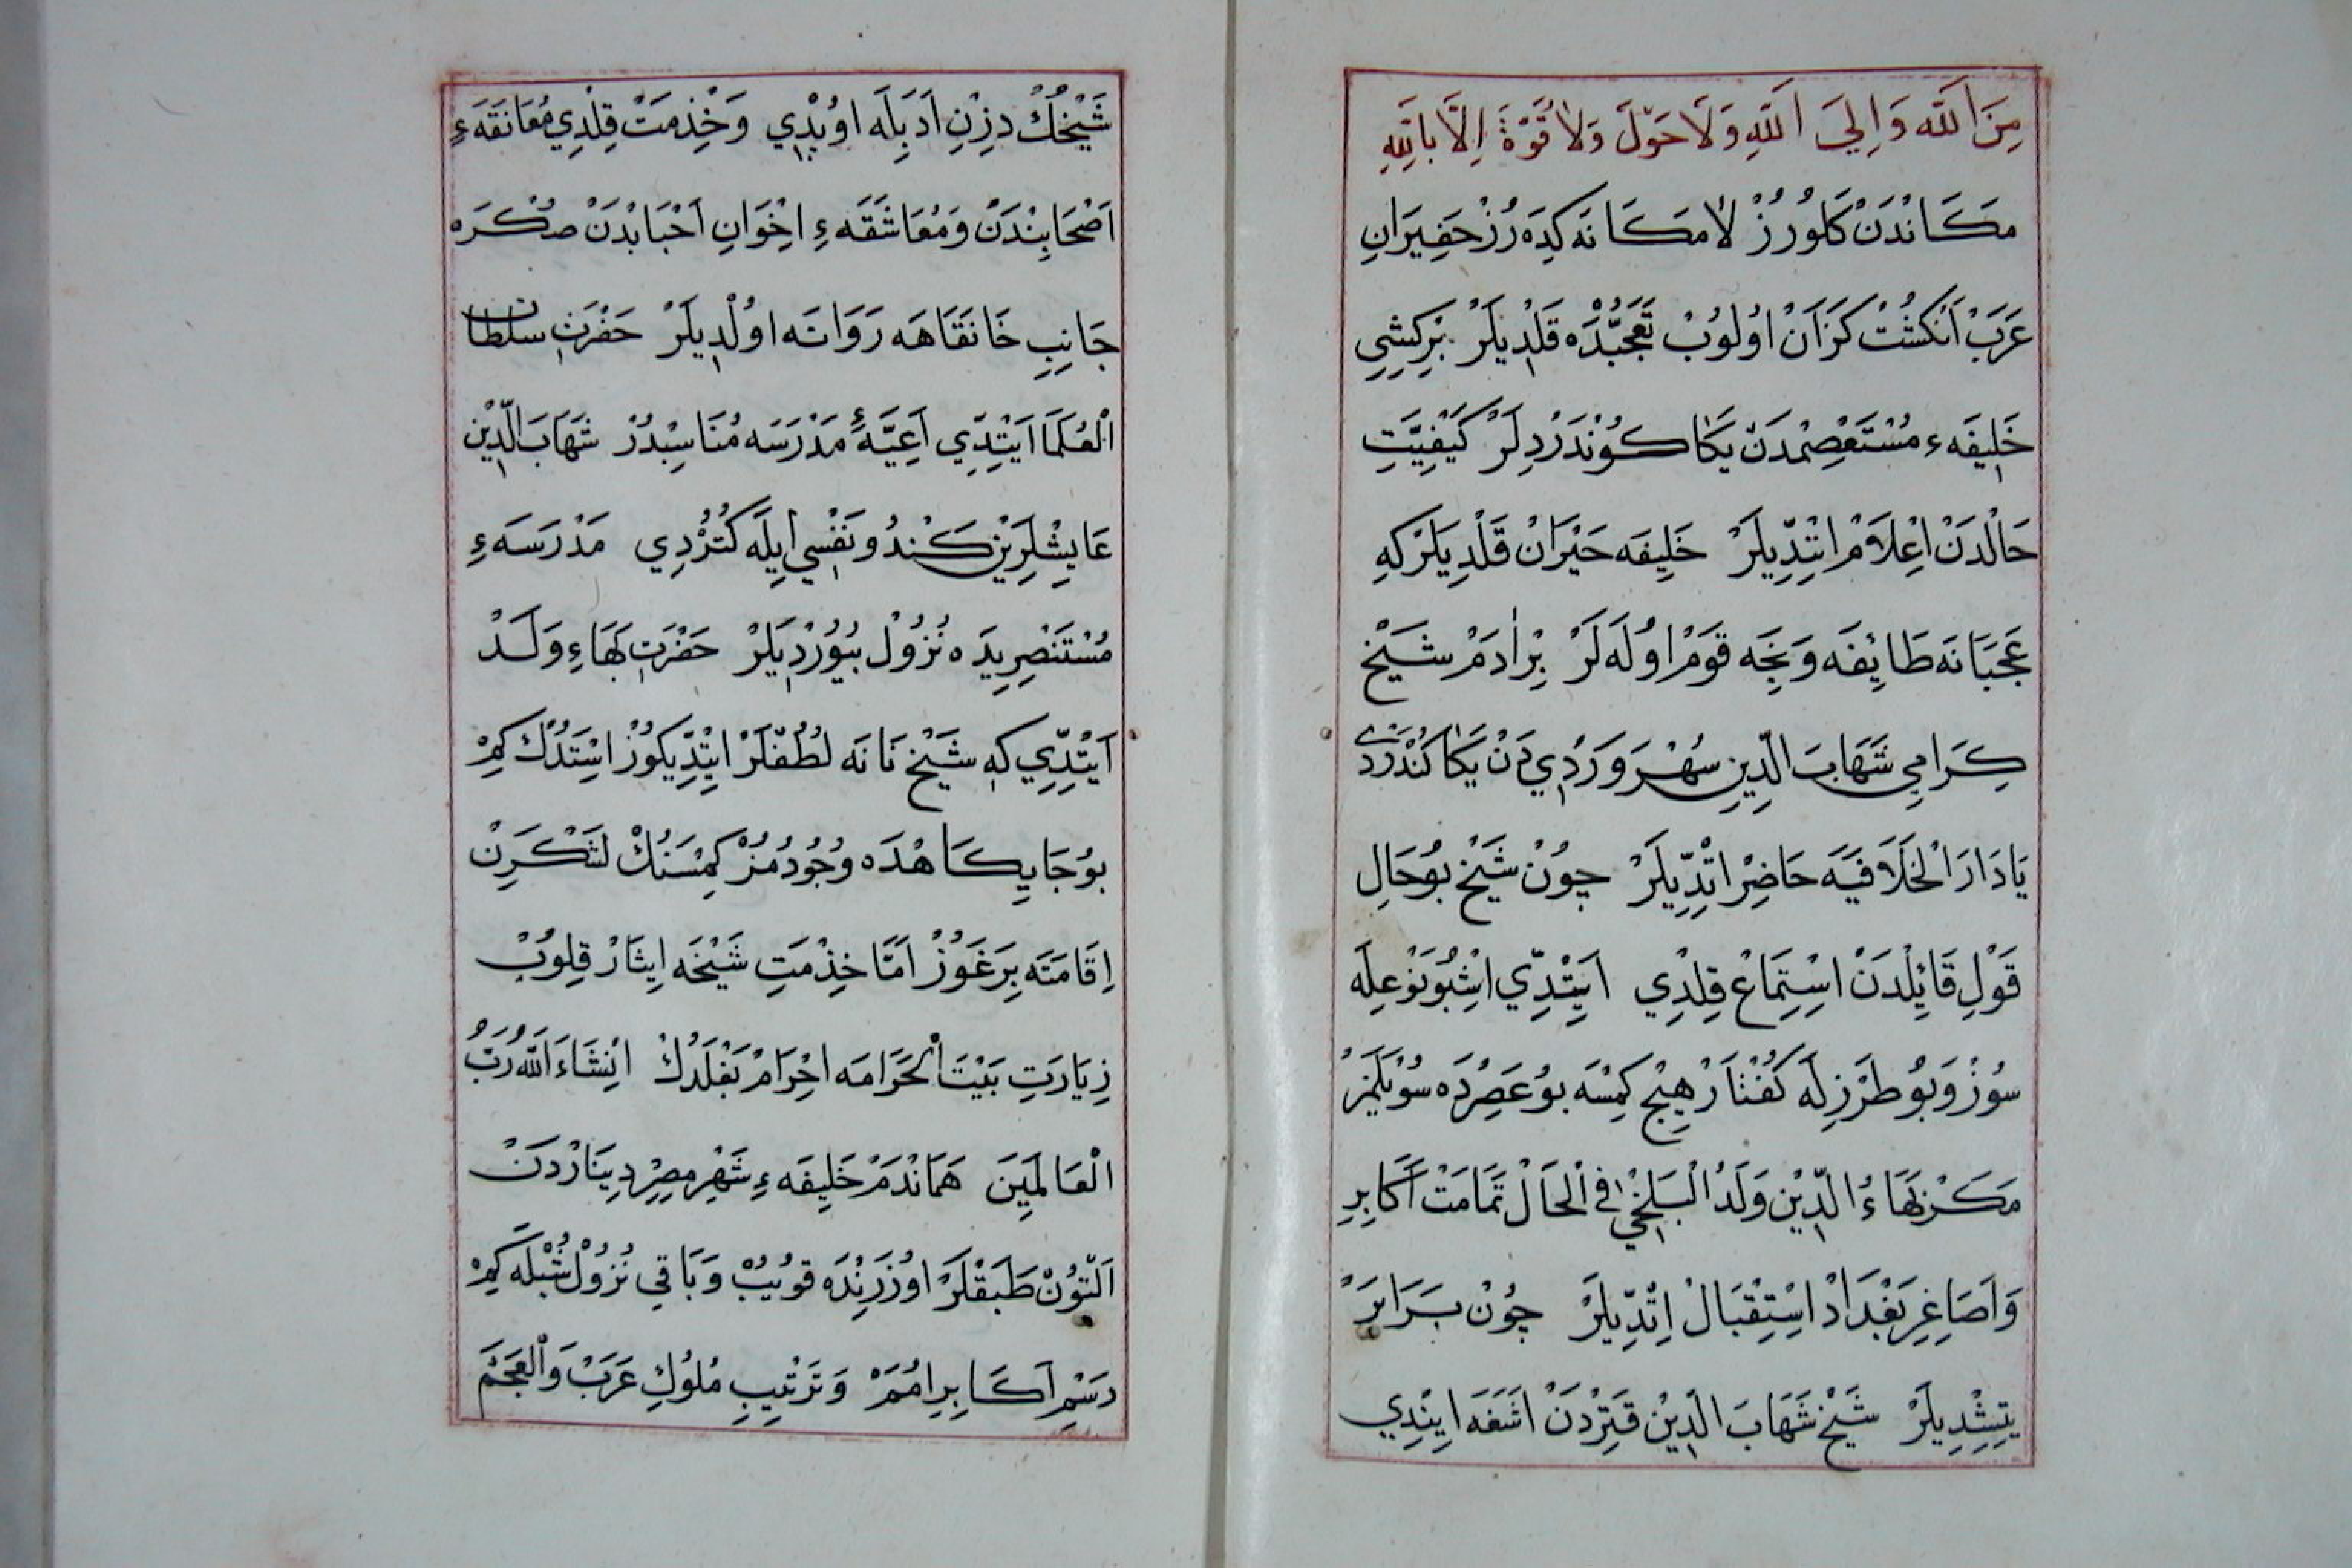 مِنَ اَللّٰه وَاِلَيَ اَللّٰهِ وَلَاحَوْلَ وَلَا قُوَّةَ اِلَّا بِاللّٰهِ
مكَانْدَنْ كَلُورُزْ لَامَكَانَه كِدَه رُزْ حَفِيرَانِ
عَرَبْ اَنْكُشْتْ كَزَانْ اوُلُوبْ تَعَجُّبْدَه قَلْدِيلَرْ بِرْكِشِي
خَلِيفَهء مُسْتَعْصِمْدَنْ يَكَا كُونْدَرْدِلَرْ كَيْفِيَّتِ
حَالْدَنْ اِعْلَامْ اِتْدِّيلَرْ خَلِيفَه حَيْرَانْ قَلْدِيلَرْ كِه
عَجَبَانَه طَائِفَه وَنِجَه قَوْمْ اوُلَه لَرْ بِرْاٰدَمْ شَيْخِ
كِرَامِي شَهَابَ الدِّينِ سُهْرَوَرْدِي دَنْ يَكَا كُنْدَرْدِي
يَادَارَ الْخَلَافَيَه حَاضِرْ اِتْدِّيلَرْ چوُنْ شَيْخ بوُحَالِ
قَوْلِ قَائِلْدَنْ اِسْتِمَاعْ قِلْدِي اَيْتِدِّي اِشْبُوبَوْعِلَه
سُوزْ وَبوُ طَرْزِلَه كُفْتَارْ هِيچْ كِمْسَه بوُ عَصِرْدَه سُوْيلَمَزْ
مَكَرْبَهَاءُ الدِّيْن وَلَدُ الْبَلْخِي فِي الْحَالْ تَمَامَتْ اَكَابِرِ
وَاَصَاغِرِ بَغْدَادْ اِسْتِقْبَالْ اِتْدِّيلَرْ چوُنْ بَرَابَرْ
يِتِشْدِيلَرْ شَيْخْ شَهَابَ الدِّيْنْ قَتِرْدَنْ اَشَغَه اِينْدِي
شَيْخُكْ دِزْنِ اَدَبِلَه اوُپْدِي وَخْذِمَتْ قِلْدِي مُعَانَقَهءِ
اَصْحَابِنْدَنْ وَمُعَاشَقَهءِ اِخْوَانِ اَحْبَابْدَنْ صُكْرَه
جَانِبِ خَانَقَاهَه رَوَانَه اوُلْدِيلَرْ حَضْرَتِ سلطان
الْعُلَمَا اَيْتِدِّي اَعِيَّهءِ مَدْرَسَه مُنَاسِبْدُرْ شَهَابَ الدِّيْن
عَايِشْلِرِيْن كَنْدُو نَفْسِي اِيلَه كُتُرْدِي مَدْرَسَهءِ
مُسْتَنْصِرِيَدَه نُزُولْ بُيُورْدِيلَرْ حَضْرَتِ بَهَاءِ وَلَدْ
اَيْتِدِّي كِه شَيْخ نَانَه لُطُفْلَرْ اِتْدِّيكُوزْ اِسْتَدُكْ كِمْ
بوُ جَايِكَاهْدَه وُجُودُمُزْ كِمْسَنُكْ لَشْكَرِنْ
اِقَامَتَه بِرَغَوُزْ اَمَّا خِذْمَتِ شَيْخَه اِيثَارْ قِلُوبْ
زِيَارَتِ بَيْتَ الْحَرَامَه اِحْرَامْ بَغْلَدُكْ اِنْشَاءَ اللّٰهُ رَبُّ
الْعَالَمِيَنَ هَمَانْدَمْ خَلِيفَهءِ شَهْرِ مِصْرِ دِينَارْدَنْ
اَلْتوُنْ طَبَقْلَرْ اوُزَرِنْدَه قوُيُبْ وَبَاقِي نُزُولْ شُبْلَه كِمْ
رَسْمِ اَكَابِرِ اُمَمْ وَتَرْتِيبِ مُلُوكِ عَرَبْ وَالْعَجَمَ